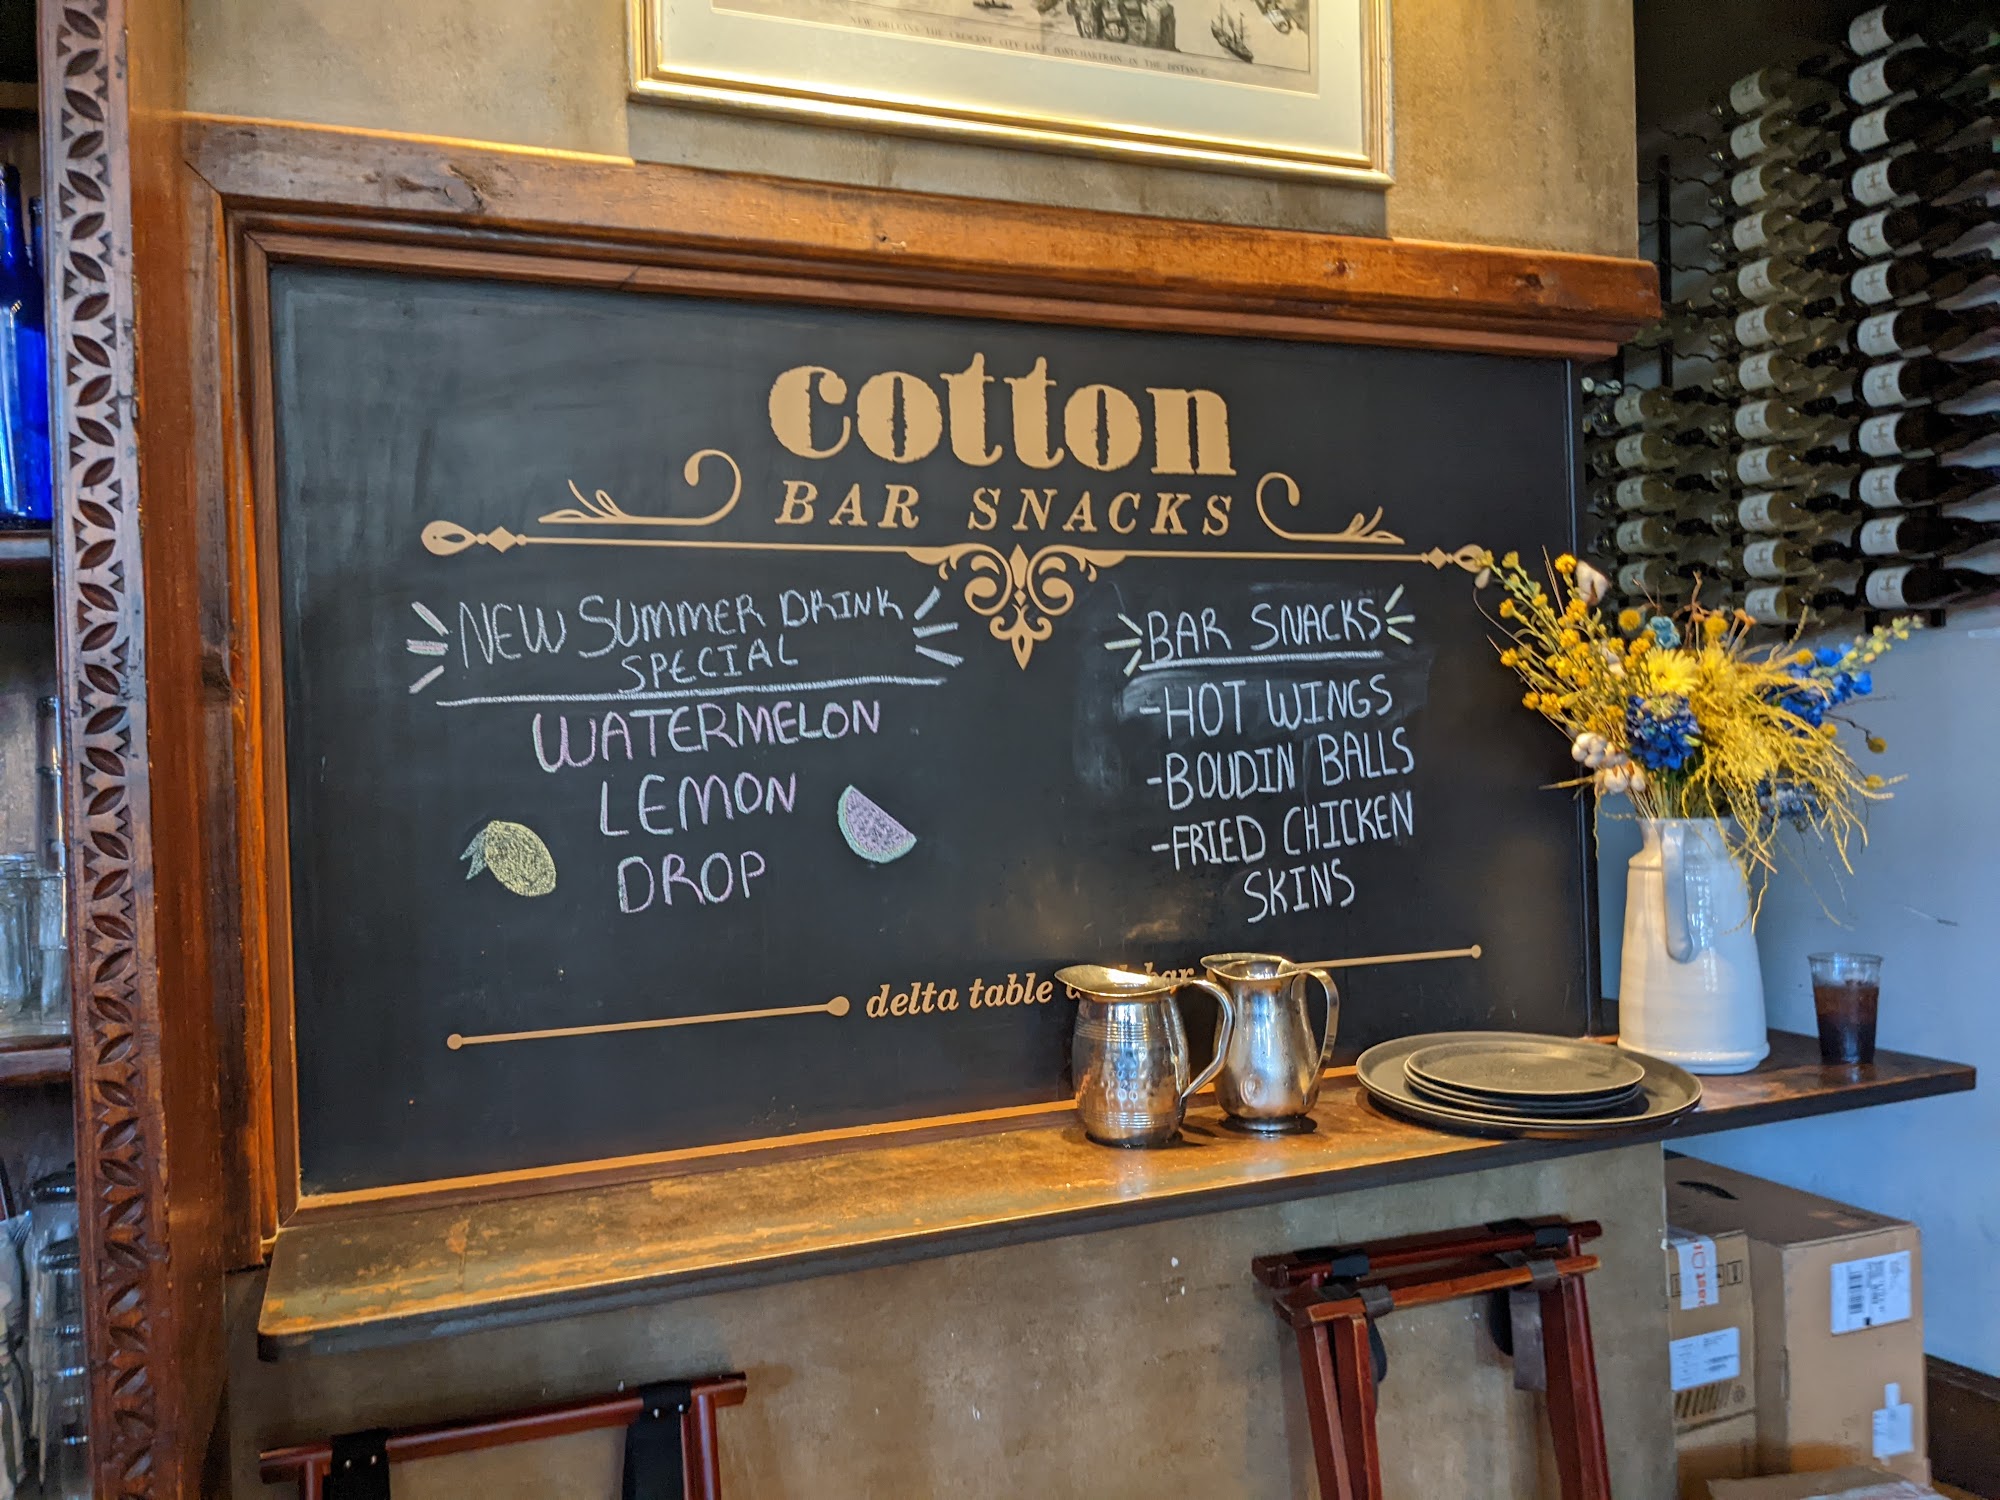 NEW ORLEANS THE CRESCENT CITY LAKE PONTCHARTRAIN IN THE DISTANCE
cotton
BAR SNACKS
NEW SUMMER DRINK
SPECIAL
WATERMELON
LEMON
DROP
BAR SNACKS
-HOT WINGS
-BOUDIN BALLS
-FRIED CHICKEN
SKINS
delta table bar